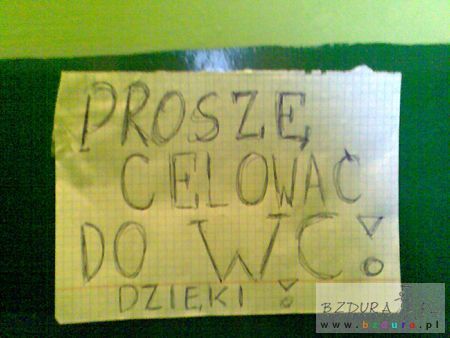 PROSZĘ
CELOWAĆ
DO WC!
DZIĘKI !
BZDURA.PL
www.bzdura.pl